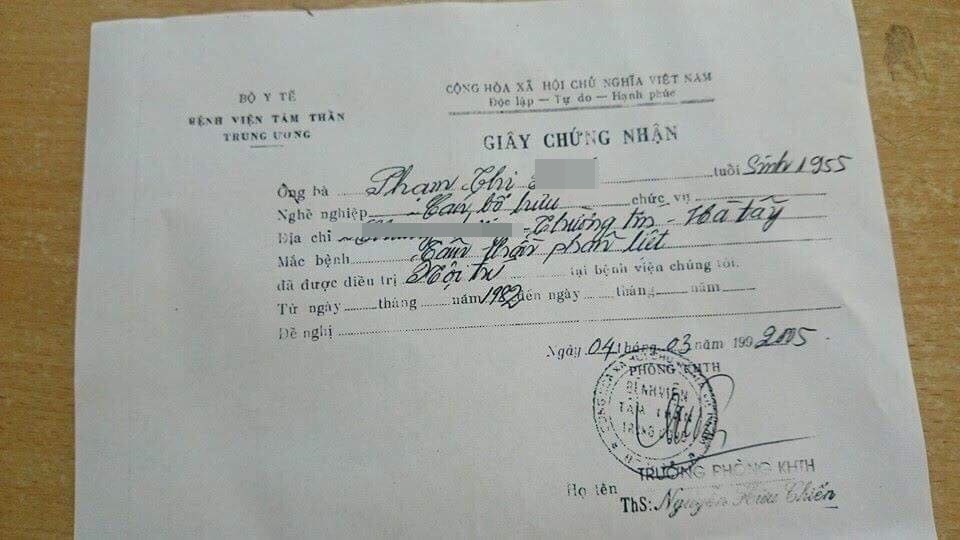 BỘ Y TẾ
BỆNH VIỆN TÂM THẦN
TRUNG ƯƠNG
CỘNG HÒA XÃ HỘI CHỦ NGHĨA VIỆT NAM
Độc lập — Tự do — Hạnh phúc
GIẤY CHỨNG NHẬN
Ông bà Phạm Thị tuổi Sinh 1955
Nghề nghiệp Cán bộ hưu chức vụ
Địa chỉ - Thường Tín - Hà Tây
Mắc bệnh Tâm thần phân liệt
đã được điều trị Nội trú tại bệnh viện chúng tôi.
Từ ngày tháng năm 1982 đến ngày tháng năm
Đề nghị
Ngày 04 tháng 03 năm 199 2005.
PHÒNG KHTH
BỆNH VIỆN
TÂM THẦN
TRUNG ƯƠNG
TRƯỞNG PHÒNG KHTH
Họ tên
ThS: Nguyễn Hữu Chiến